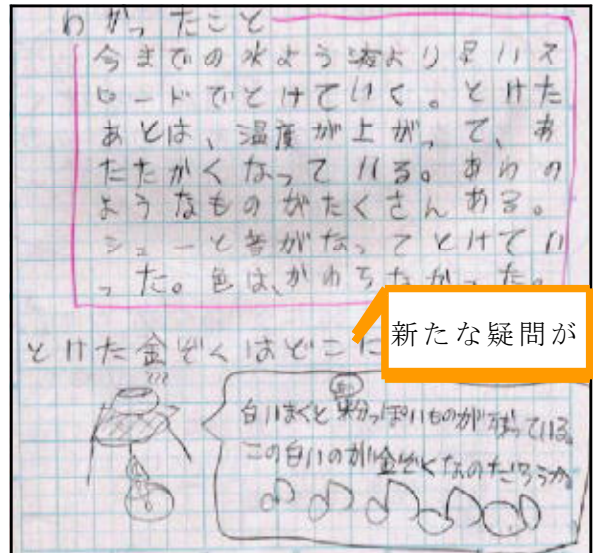 わかったこと
今までの水よう液より早いス
ピードでとけていく。とけた
あとは、温度が上がって、あ
たたかくなっている。あわの
ようなものがたくさんある。
シューと音がなってとけてい
った。色は、かわらなかった。
新たな疑問が
とけた金ぞくはどこに
白いまくと粉っぽいものが残っている。
この白いのが金ぞくなのだろうか。